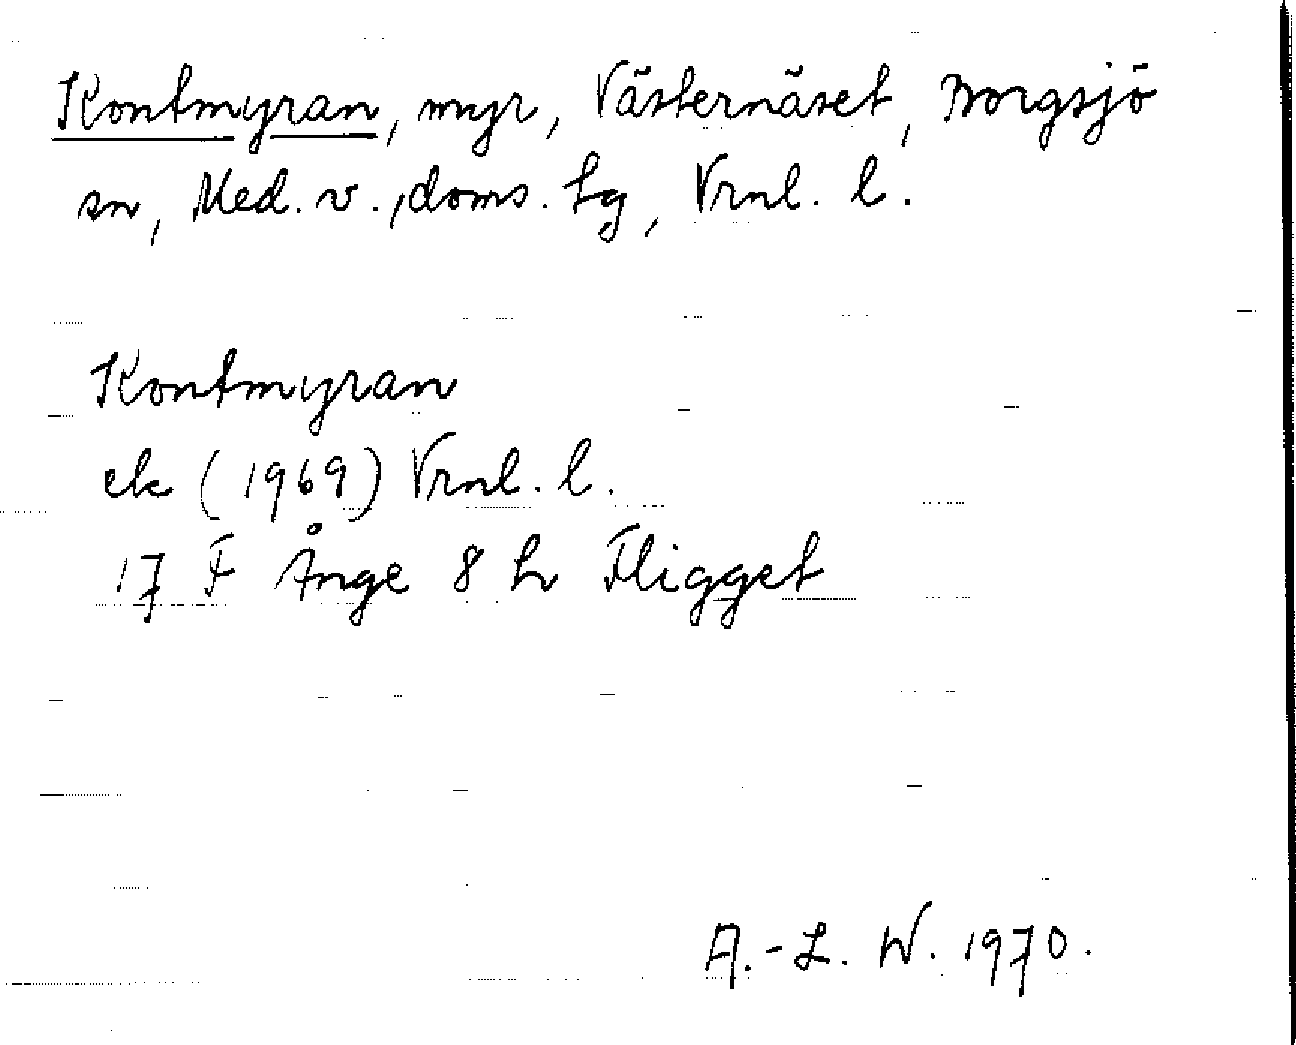 Kontmyran, myr, Västernäset, Borgsjö
sn, Med. v., doms. tg, Vrnl. l.
Kontmyran
ek (1969) Vrnl. l.
17 F Ånge 8 h Fligget
A.-L. W. 1970.